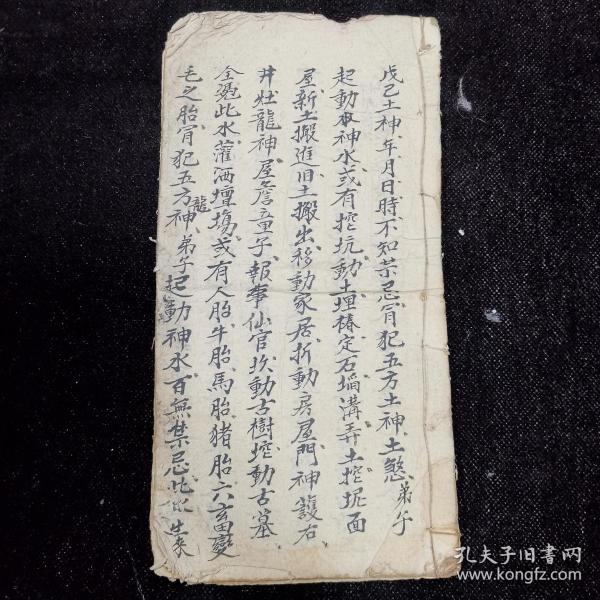 戊己土神年月日時不知禁忌冐犯五方土神土煞弟子
起動神水或有挖坑動土埋樁定石墻溝弄土挖坭面
屋新土搬進旧土搬出移動家居折動房屋門神護右
井灶龍神屋簷童子報事仙官坎動古樹挖動古墓
全憑此水灌洒壇塲或有人胎牛胎馬胎猪胎六畜變
毛之胎冐犯五方龍神弟子起動神水百無禁忌此水生來
孔夫子旧书网
www.kongfz.com